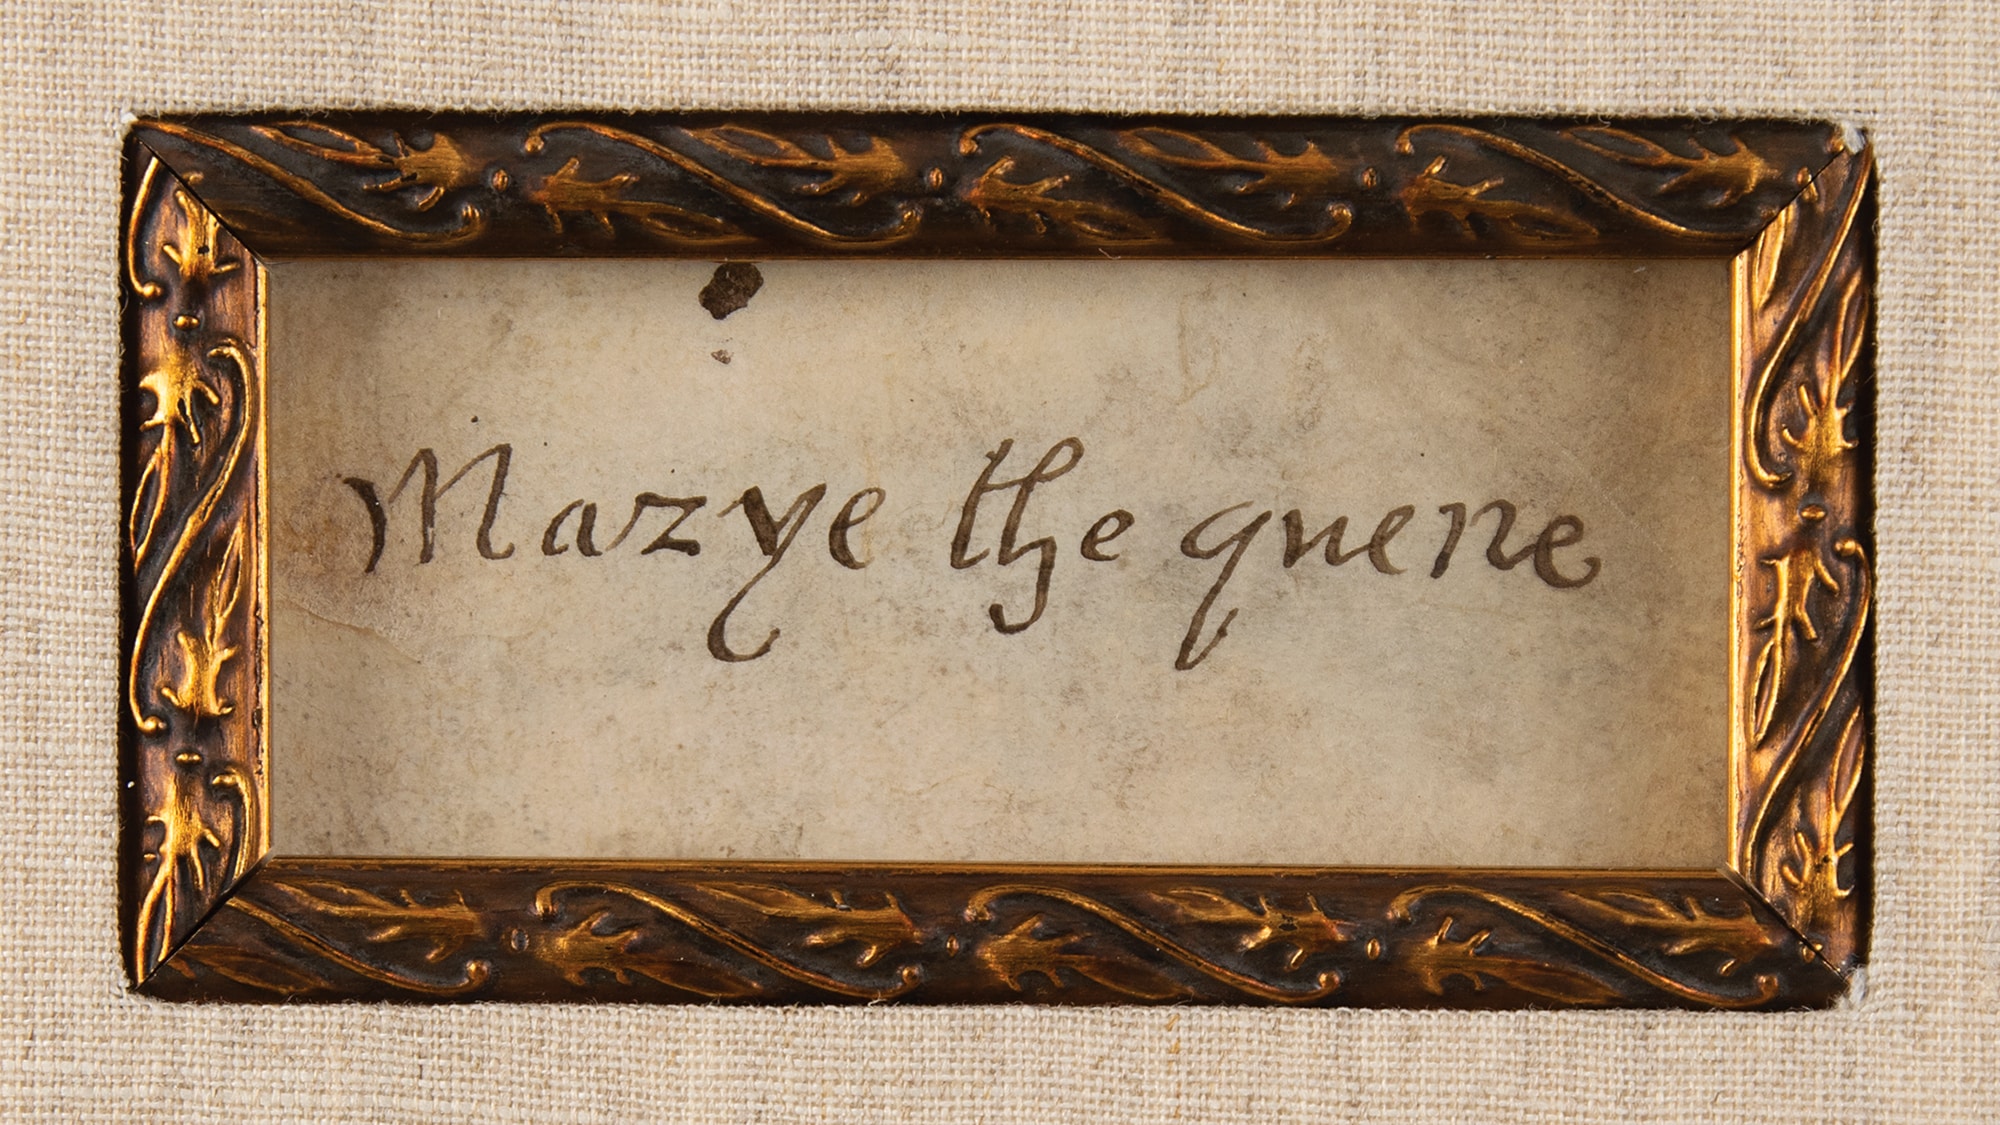 Marye the quene